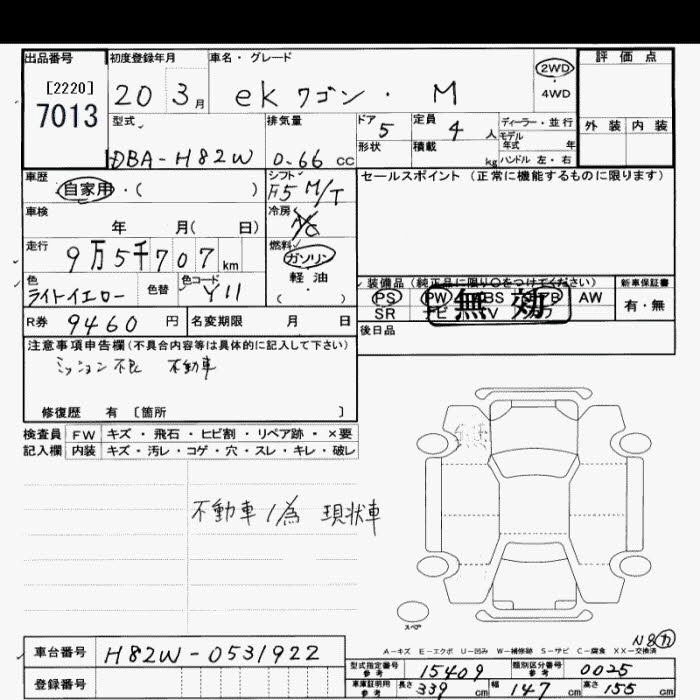 出品番号 初度登録年月 車名・グレード 評価点
[2220]
7013
20 3月 ek ワゴン・ M
2WD
・
4WD
型式 排気量 ドア 5 定員 4 人 ディーラー・並行 外装 内装
モデル年式 年
DBA-H82W 0.66 CC 形状 積載 kg ハンドル 左・右
車歴 シフト セールスポイント (正常に機能するものに限ります)
自家用・( ) F5 M/T
車検 冷房 A/C
年 月( 日)
走行 燃料
9万5千707km ガソリン
軽油
( )
色 色替 色コード 装備品 (純正品に限り○をつけてください) 新車保証書
ライトイエロー Y11 PS PW ABS AW 有・無
無効
SR ナビ TV
R券 9460 円 名変期限 月 日 後日品
注意事項申告欄(不具合内容等は具体的に記入して下さい)
ミッション不良 不動車
修復歴 有 〔箇所 〕
検査員 FW キズ・飛石・ヒビ割・リペア跡・×要
記入欄 内装 キズ・汚レ・コゲ・穴・スレ・キレ・破レ
不動車ノ為 現状車
スペア
A-キズ E-エクボ U-凹み W-補修跡 S-サビ C-腐食 XX-交換済
車台番号 H82W-0531922
型式指定番号 参考 15409 類別区分番号 参考 0025
登録番号
車庫証明用 参考 長さ 339 cm 幅 147 cm 高さ 155 cm